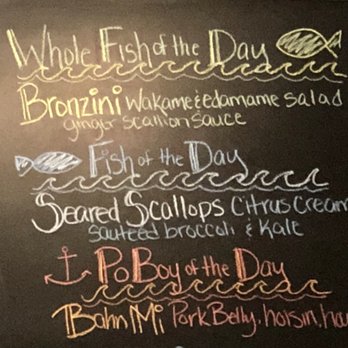 Whole Fish of the Day
Bronzini Wakame & edamame salad
ginger scallion sauce
Fish of the Day
Seared Scallops Citrus Cream
sauteed broccoli & Kale
Po Boy of the Day
Bahn Mi Pork Belly, hoisin,